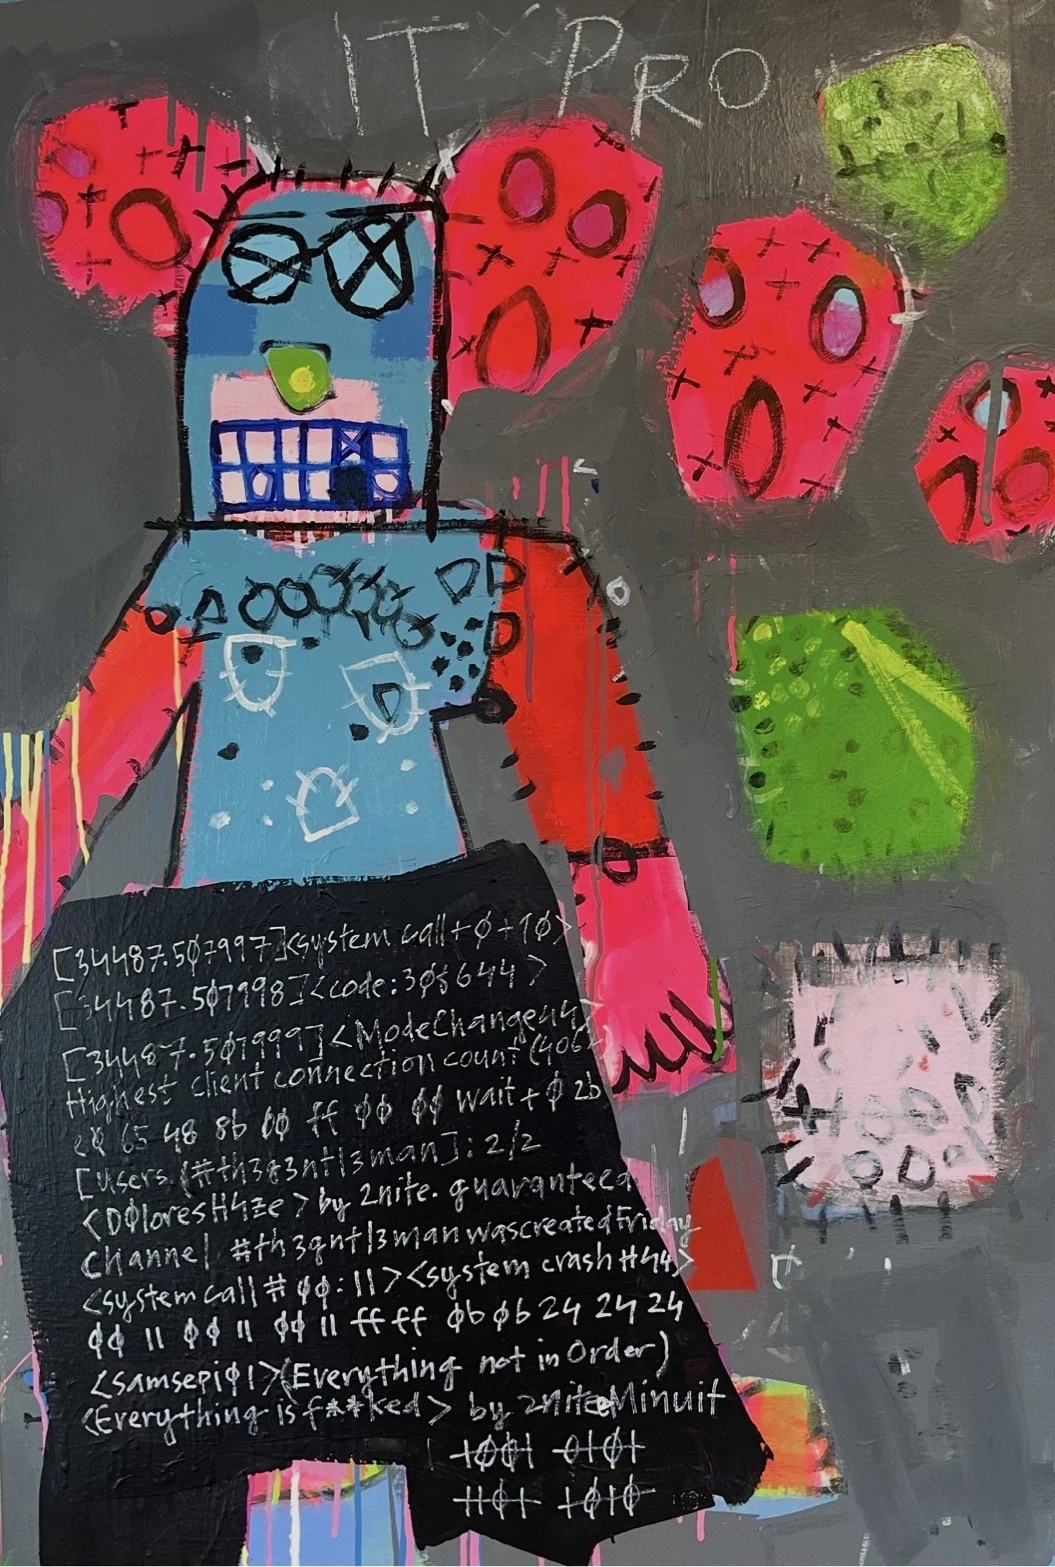 IT PRO
[34487.507997]<system call+0+10>
[34487.507998]<code:306644>
[34487.507999]<ModeChange44>
Highest client connection count (406
65 48 8b 00 ff 00 00 wait+0 2b
[users.(#th3g3ntl3man]: 2/2
<D0loresH4ze> by 2nite. guaranteed
Channel #th3gntl3man wascreatedFriday
<system call # 00:11><system crash #44>
00 11 00 11 00 11 ff ff 0b 0b 24 24 24
<samsepi01>(Everything not in Order)
<Everything is f**ked> by 2niteMinuit
1001 0101
1101 1010